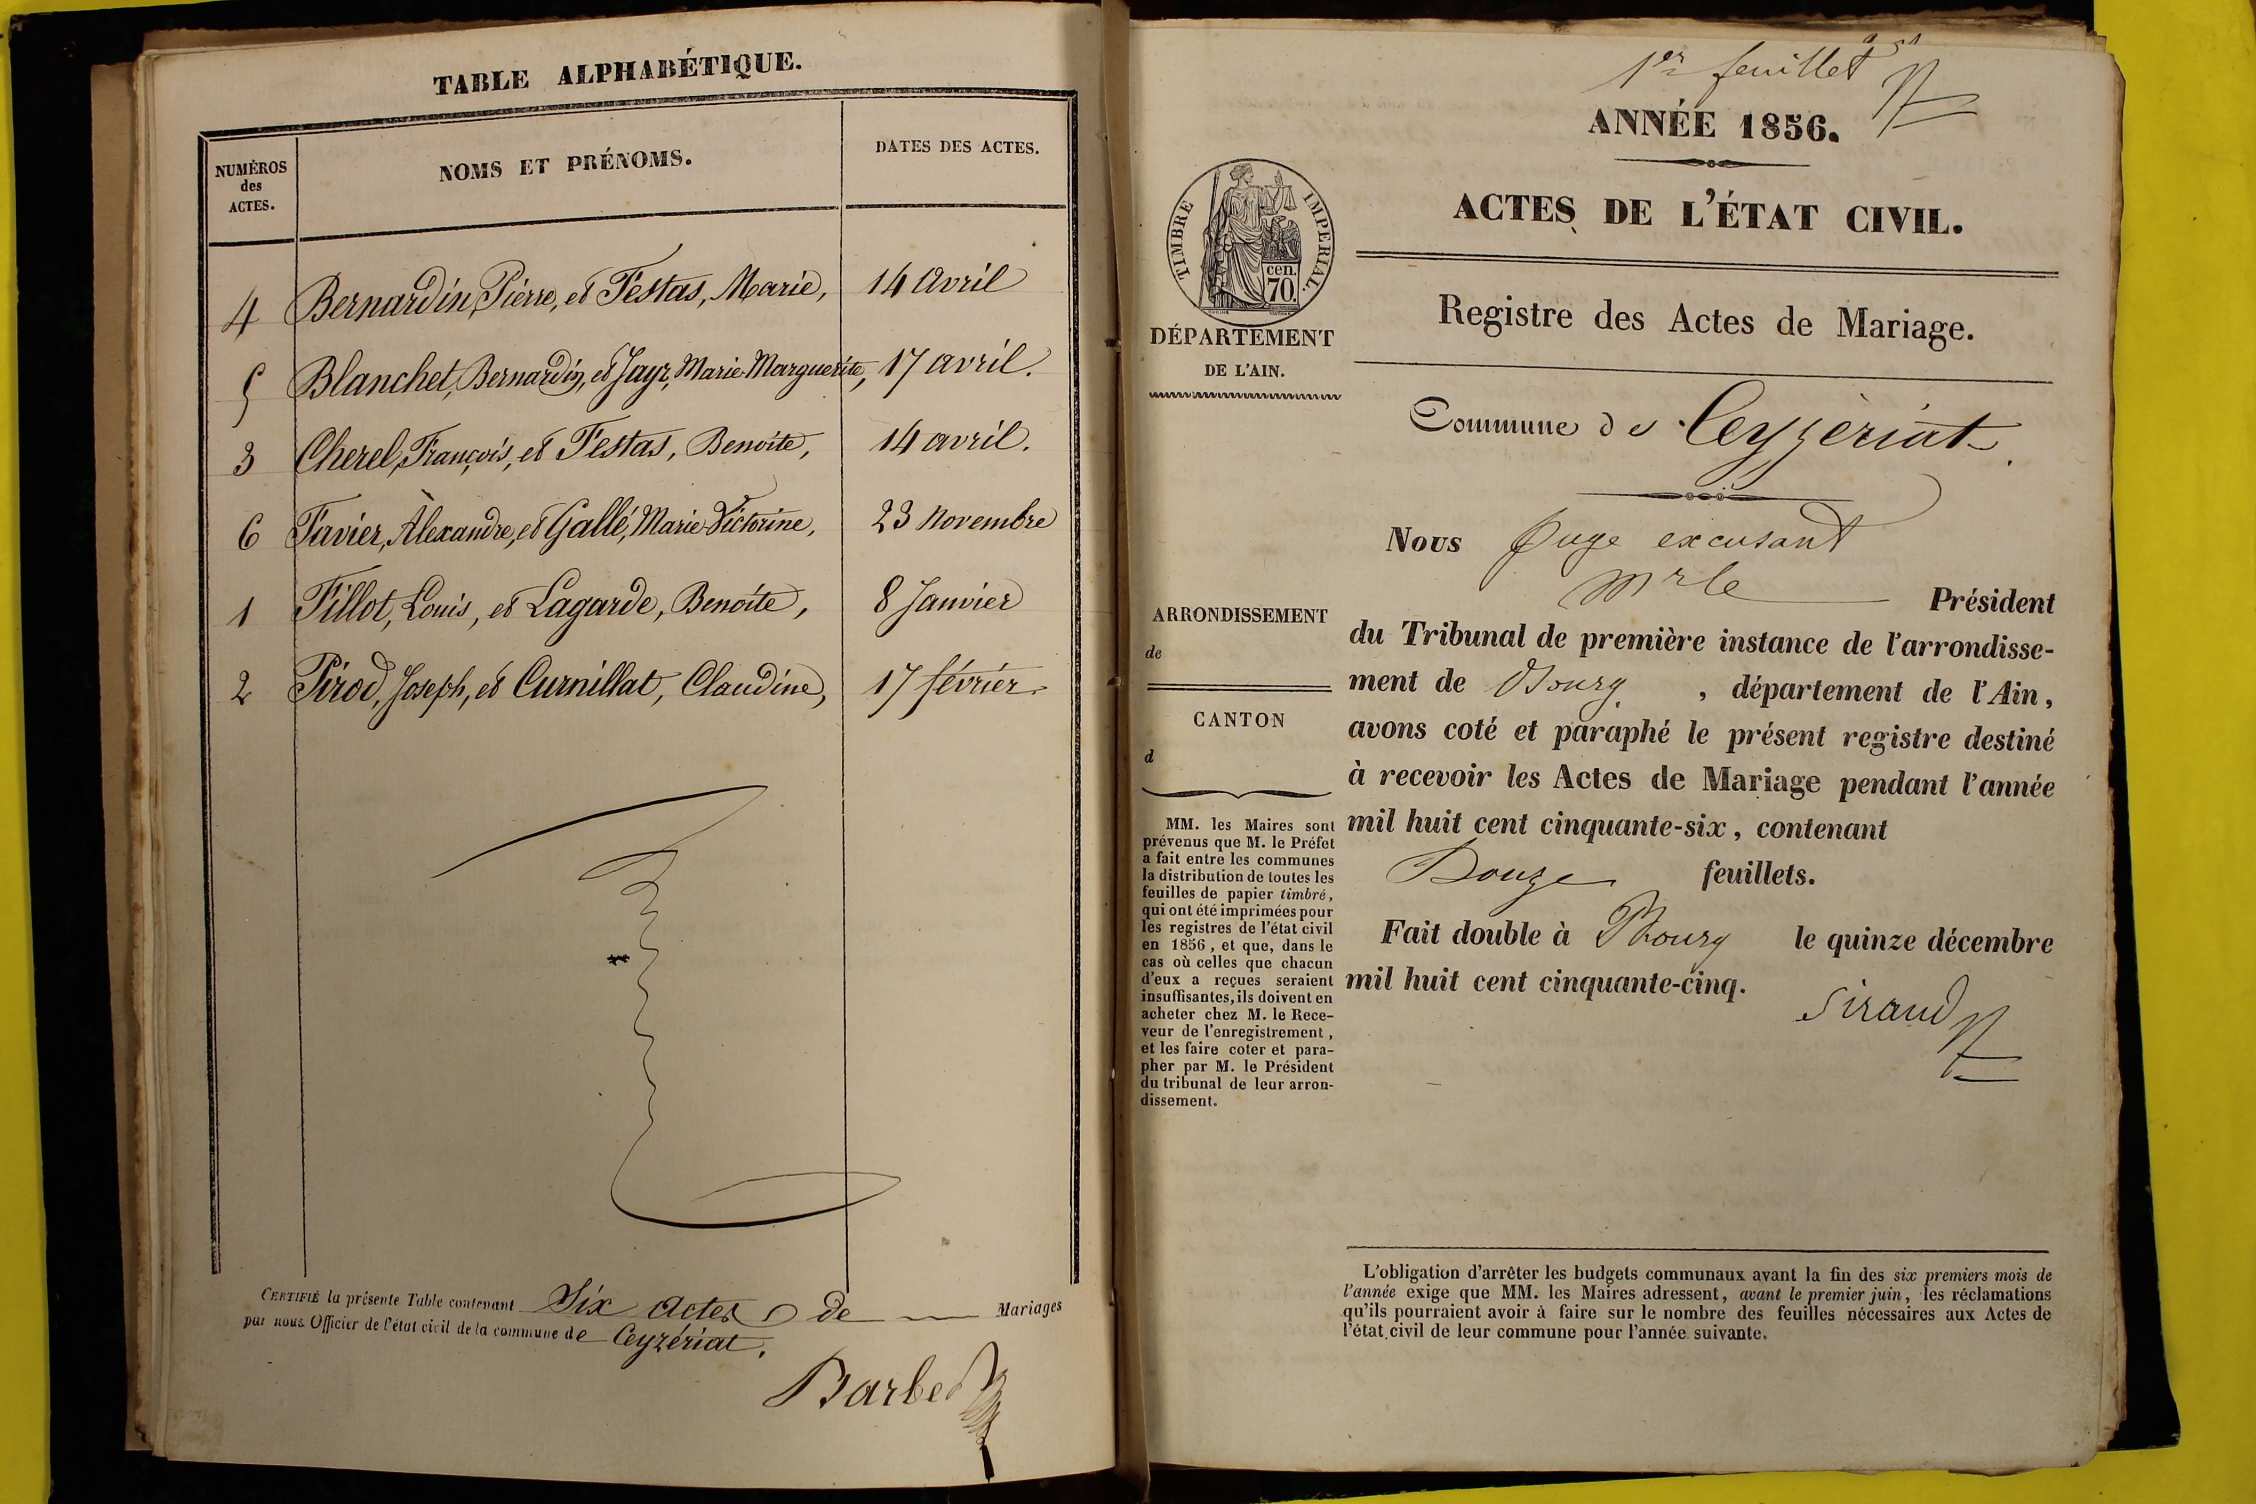 TABLE ALPHABÉTIQUE.
NUMÉROS des ACTES. NOMS ET PRÉNOMS. DATES DES ACTES.
4 Bernardin, Pierre, et Festas, Marie, 14 Avril
5 Blanchet, Bernardin, et Jayr, Marie-Marguerite, 17 avril.
3 Cherel, François, et Festas, Benoite, 14 avril.
6 Favier, Alexandre, et Gallé, Marie Victorine, 23 Novembre
1 Fillot, Louis, et Lagarde, Benoite, 8 Janvier
2 Pirod, Joseph, et Curnillat, Claudine, 17 février
CERTIFIÉ la présente Table contenant Six Actes de Mariages
par nous Officier de l'état civil de la commune de Ceyzériat.
Barbet
1er feuillet
ANNÉE 1856.
ACTES DE L'ÉTAT CIVIL.
TIMBRE IMPERIAL.
cen.
70.
DÉPARTEMENT
DE L'AIN.
Registre des Actes de Mariage.
Commune de Ceyzériat
Nous Juge excusant
Mr le Président
du Tribunal de première instance de l'arrondisse-
ment de Bourg, département de l'Ain,
avons coté et paraphé le présent registre destiné
à recevoir les Actes de Mariage pendant l'année
mil huit cent cinquante-six, contenant
Douze feuillets.
Fait double à Bourg le quinze décembre
mil huit cent cinquante-cinq.
Siraud
ARRONDISSEMENT
de
CANTON
d
MM. les Maires sont
prévenus que M. le Préfet
a fait entre les communes
la distribution de toutes les
feuilles de papier timbré,
qui ont été imprimées pour
les registres de l'état civil
en 1856, et que, dans le
cas où celles que chacun
d'eux a reçues seraient
insuffisantes, ils doivent en
acheter chez M. le Rece-
veur de l'enregistrement,
et les faire coter et para-
pher par M. le Président
du tribunal de leur arron-
dissement.
L'obligation d'arrêter les budgets communaux avant la fin des six premiers mois de
l'année exige que MM. les Maires adressent, avant le premier juin, les réclamations
qu'ils pourraient avoir à faire sur le nombre des feuilles nécessaires aux Actes de
l'état civil de leur commune pour l'année suivante.